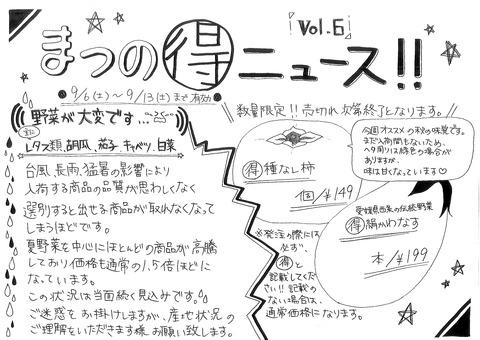 Vol.6
まつの得ニュース!!
9/6(土)～9/13(土)まで有効
野菜が大変です…
レタス類、胡瓜、茄子、キャベツ、白菜
台風、長雨、猛暑の影響により
入荷する商品の品質が思わしくなく
選別すると出せる商品が取れなくなって
しまうほどです。
夏野菜を中心にほとんどの商品が高騰
しており価格も通常の1.5倍ほどに
なっています。
この状況は当面続く見込みです。
ご迷惑をお掛けしますが、産地状況の
ご理解をいただきます様お願い致します。
数量限定!!売切れ次第終了となります。
得種なし柿
個/¥149
今回オススメの秋の味覚です。
まだ入荷間もないため、
ヘタ周りは緑色の場合が
ありますが、
味は甘くなっています♡
※発注の際には
必ず、
得と
記載してくだ
さい!!記載の
ない場合は、
通常価格になります。
愛媛県西条の伝統野菜
得絹かわなす
本/¥199